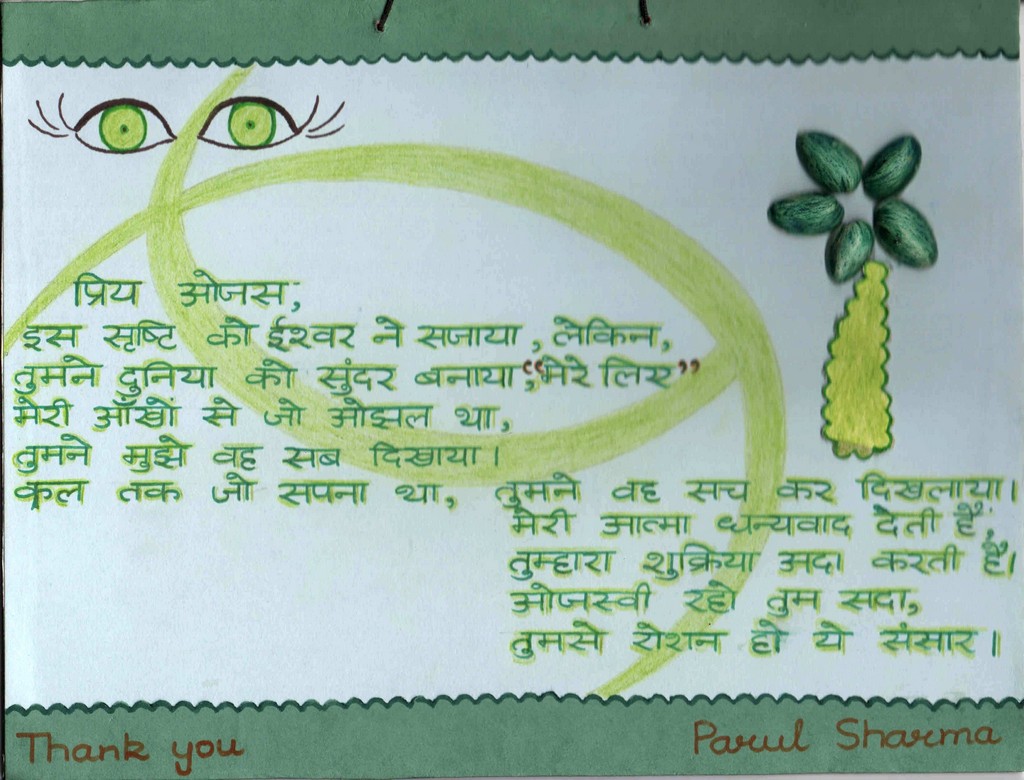 प्रिय ओजस,
इस सृष्टि को ईश्वर ने सजाया, लेकिन,
तुमने दुनिया को सुंदर बनाया, "मेरे लिए"
मेरी आँखों से जो ओझल था,
तुमने मुझे वह सब दिखाया।
कल तक जो सपना था, तुमने वह सच कर दिखलाया।
मेरी आत्मा धन्यवाद देती है,
तुम्हारा शुक्रिया अदा करती है।
ओजस्वी रहो तुम सदा,
तुमसे रोशन हो ये संसार।
Thank you
Parul Sharma